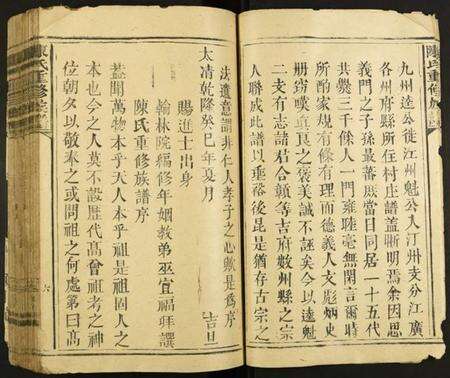 陳氏重修族
九州逵公徙江州魁公入汀州支分江廣
各州府縣所住村庄譜蓋晰明焉余因思
義門之子孫最蕃厥當日同居一十五代
共爨三千馀人一門雍睦毫無閑言爾時
所酌家規有條有理而德義人文彪炳史
册窈噗真良之褒美誠不誣矣今以逵魁
二支有志諸君合贛等吉府數州縣之宗
人聯成此譜以垂裕後昆是猶存古宗之
法遺意謂非仁人孝子之心歟是為序
太清乾隆癸巳年夏月 吉旦
賜進士出身
翰林院編修年姻教弟巫宜福拜譔
陳氏重修族譜序
蓋聞萬物本乎天人本乎祖是祖固人之
本也今之人莫不設歷代髙曾祖考之神
位朝夕以敬奉之或問祖之何處第曰髙
六
陳氏重修族